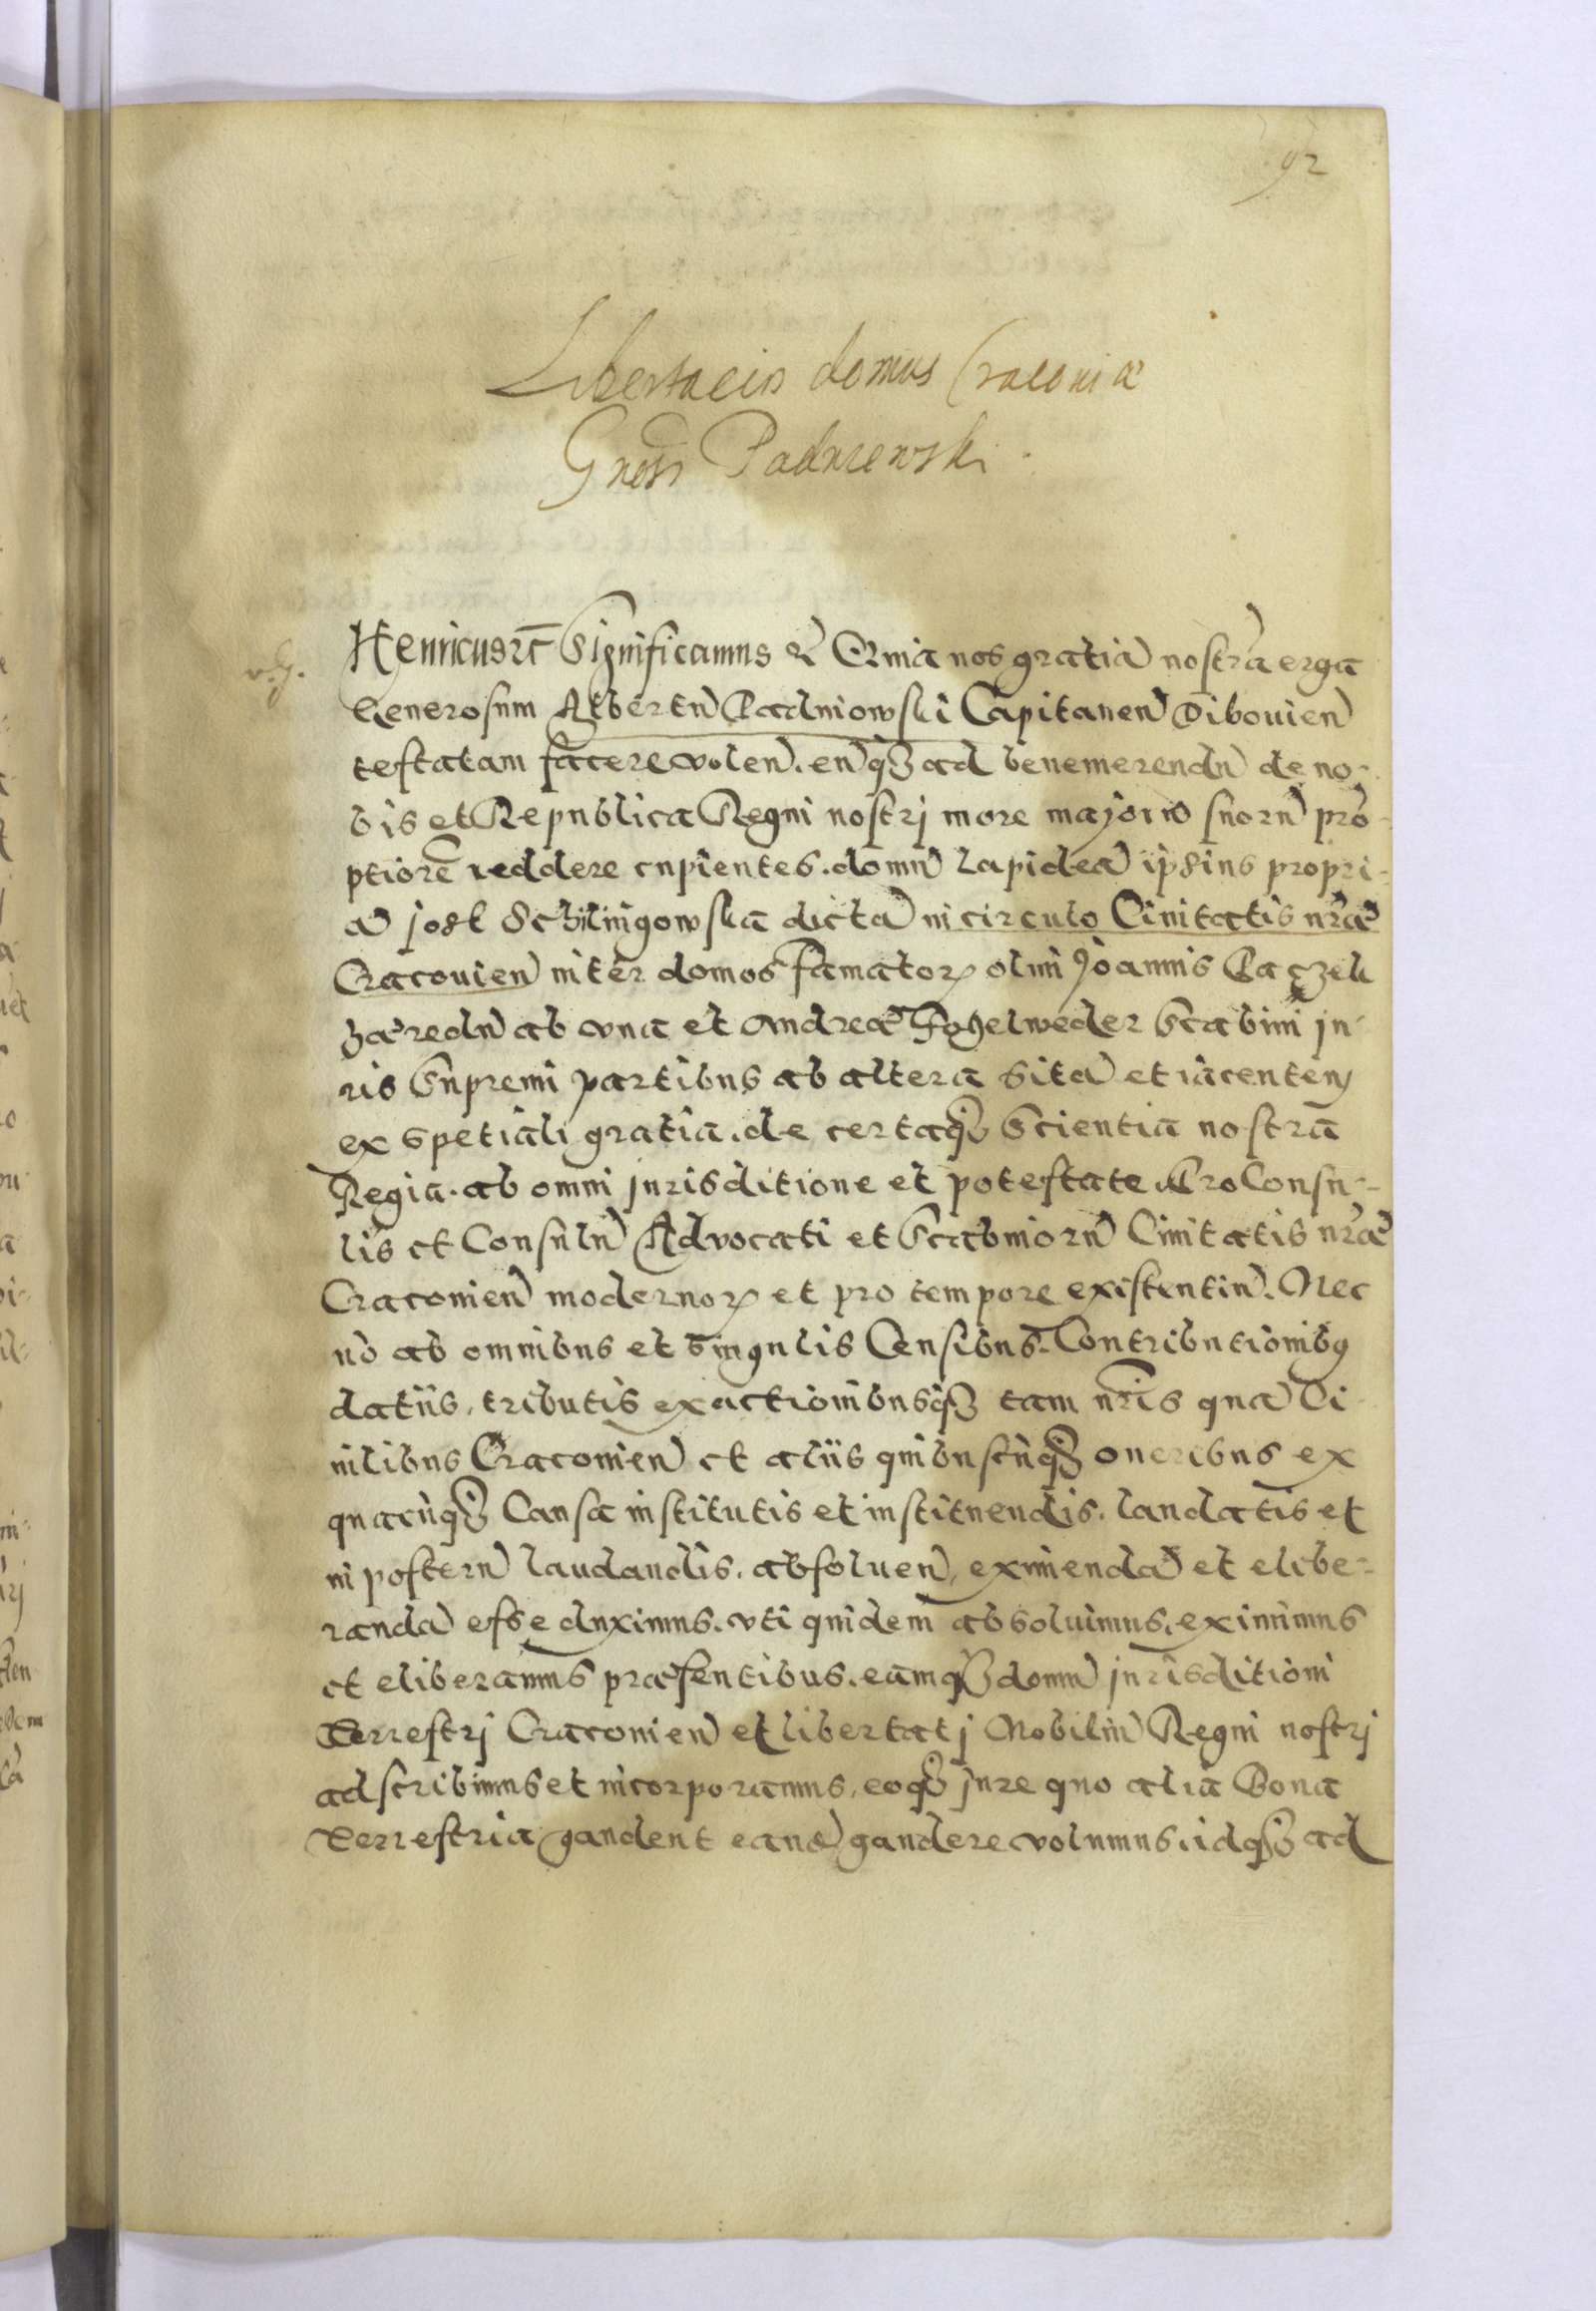 92
Libertacio domus Cracoviæ
Gnosi Padniewski.
Henricus etc Significamus &c Quia nos gratiā nostrā erga
Generosum Albertū Padniowski Capitaneū Dibouien
testatam facere volen. eūq3 ad benemerendū de no-
bis et Republica Regni nostrj more majorū suorū pro
ptiorē reddere cupientes. domū lapideā ipsius propri-
ā jost Schilingowskā dictā in circulo Ciuitatis nrǣ
Cracouien inter domos famatoꝝ olim Joannis Paczek
hæredū ab vna et Andreæ Fogelweder Scabini ju-
ris Supremi partibus ab altera sitā et iacentem
ex spetiali gratia. de certaq3 Scientia nostra
Regia. ab omni jurisditione et potestate ProConsu-
lis et Consulū Advocati et Scabinorū Ciuitatis nrǣ
Cracouien modernoꝝ et pro tempore existentiū. Nec
nō ab omnibus et singulis Censibus. Contributionibꝰ
datijs, tributis exactionibusq3 tam nris quā Ci-
uilibus Cracouien et alijs quibuscūq3 oneribus ex
quacūq3 Causa institutis et instituendis. laudatis et
in posterū laudandis. absoluen, eximendā et elibe-
randā esse duximus. vti quidem absoluimus. eximimus
et eliberamus præsentibus. eamq3 domū jurisditioni
Terrestrj Cracouien et libertatj Nobiliū Regni nostrj
adscribimus et incorporamus, eoq3 jure quo alia Bona
Terrestria gaudent eandē gaudere volumus. idq3 ad